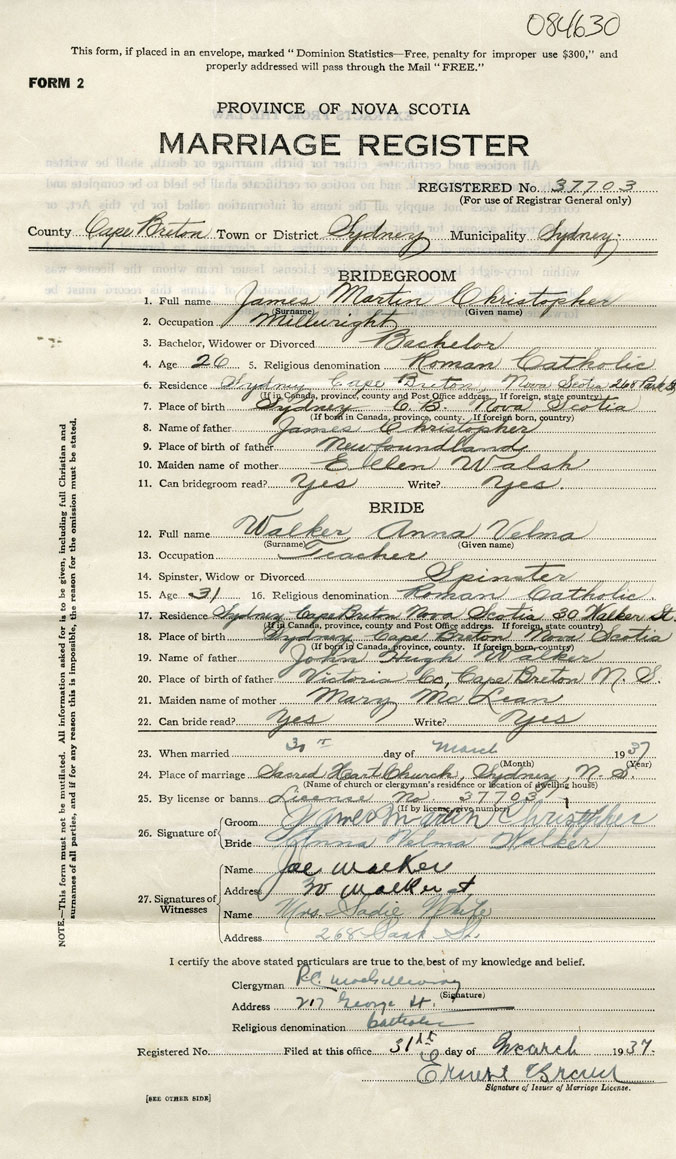 084630
This form, if placed in an envelope, marked "Dominion Statistics—Free, penalty for improper use $300," and
properly addressed will pass through the Mail "FREE."
FORM 2
PROVINCE OF NOVA SCOTIA
MARRIAGE REGISTER
REGISTERED No. 37703
(For use of Registrar General only)
County Cape Breton Town or District Sydney Municipality Sydney
BRIDEGROOM
1. Full name James Martin Christopher
(Surname) (Given name)
2. Occupation Millwright
3. Bachelor, Widower or Divorced Bachelor
4. Age 26 5. Religious denomination Roman Catholic
6. Residence Sydney Cape Breton, Nova Scotia 268 Park St
(If in Canada, province, county and Post Office address. If foreign, state country)
7. Place of birth Sydney C.B. Nova Scotia
(If born in Canada, province, county. If foreign born, country)
8. Name of father James Christopher
9. Place of birth of father Newfoundland
10. Maiden name of mother Ellen Walsh
11. Can bridegroom read? Yes Write? Yes.
BRIDE
12. Full name Walker Anna Velma
(Surname) (Given name)
13. Occupation Teacher
14. Spinster, Widow or Divorced Spinster
15. Age 31 16. Religious denomination Roman Catholic.
17. Residence Sydney Cape Breton Nova Scotia 30 Walker St.
(If in Canada, province, county and Post Office address. If foreign, state country)
18. Place of birth Sydney Cape Breton Nova Scotia
(If born in Canada, province, county. If foreign born, country)
19. Name of father John Hugh Walker
20. Place of birth of father Victoria Co, Cape Breton N. S.
21. Maiden name of mother Mary McLean
22. Can bride read? Yes Write? Yes
23. When married 30th day of March 1937
(Month) (Year)
24. Place of marriage Sacred Heart Church, Sydney, N. S.
(Name of church or clergyman's residence or location of dwelling house)
25. By license or banns License No 37703
(If by license, give number)
26. Signature of
Groom James Martin Christopher
Bride Anna Velma Walker
27. Signatures of Witnesses
Name Joe Walker
Address 30 Walker st
Name Mrs. Sadie White
Address 268 Park St.
I certify the above stated particulars are true to the best of my knowledge and belief.
Clergyman
(Signature)
Address 217 George St.
Religious denomination Catholic
Registered No. Filed at this office 31st day of March 1937.
Ernest
Signature of Issuer of Marriage License.
[SEE OTHER SIDE]
NOTE.—This form must not be mutilated. All information asked for is to be given, including full Christian and
surnames of all parties, and if for any reason this is impossible, the reason for the omission must be stated.